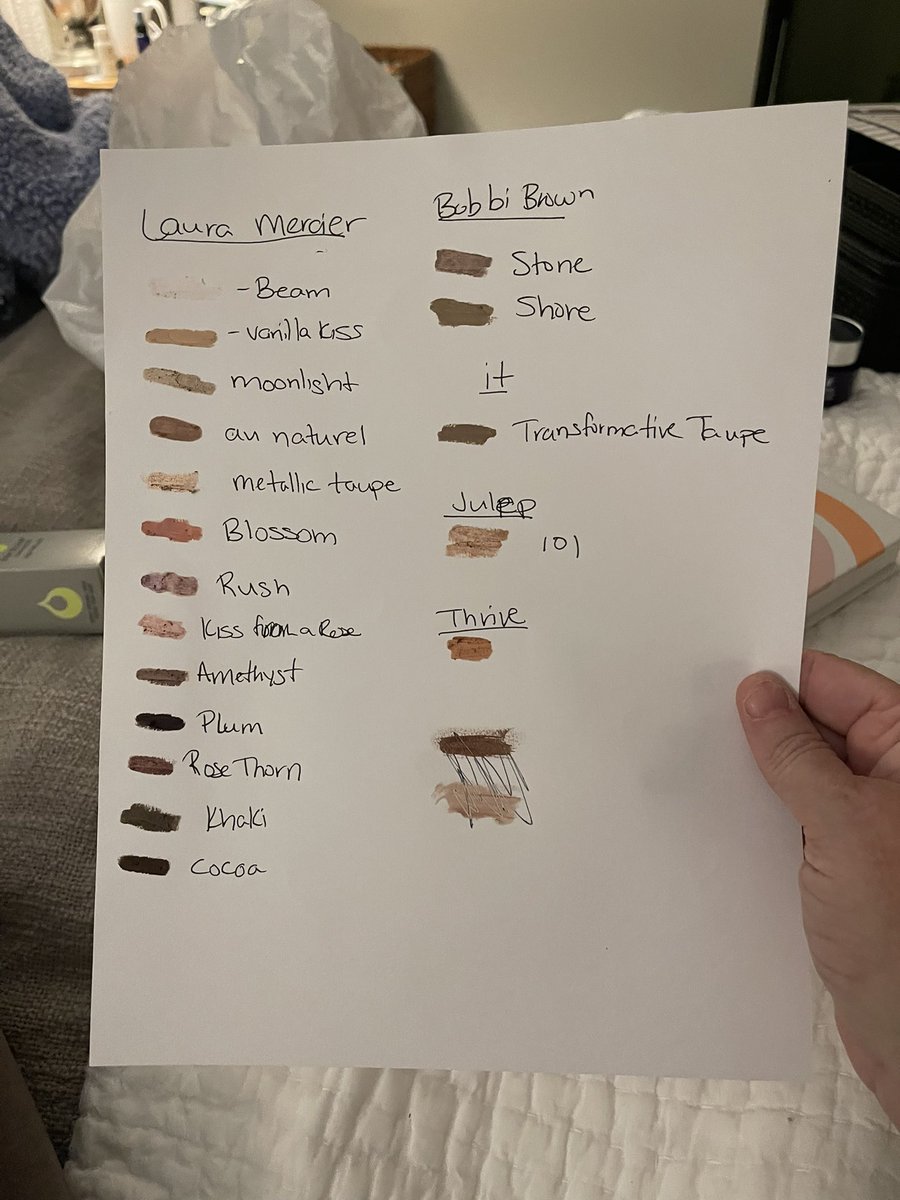 Laura Mercier
- Beam
- vanilla kiss
moonlight
au naturel
metallic taupe
Blossom
Rush
Kiss from a Rose
Amethyst
Plum
Rose Thorn
Khaki
Cocoa
Bobbi Brown
Stone
Shore
it
Transformative Taupe
Julep
101
Thrive